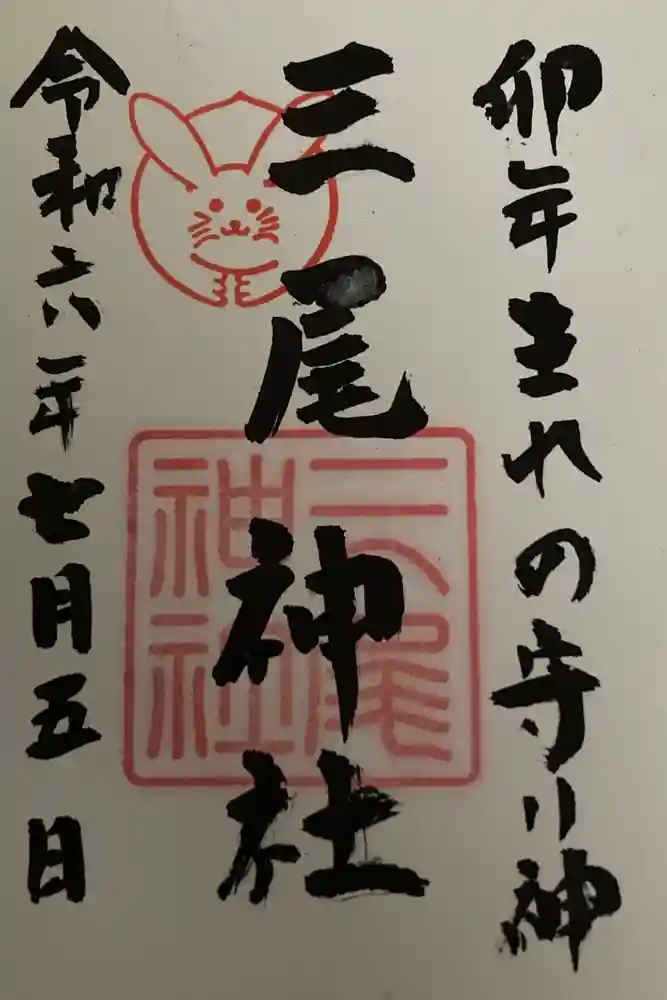 卯年生れの守り神
三尾神社
三尾神社
令和六年七月五日